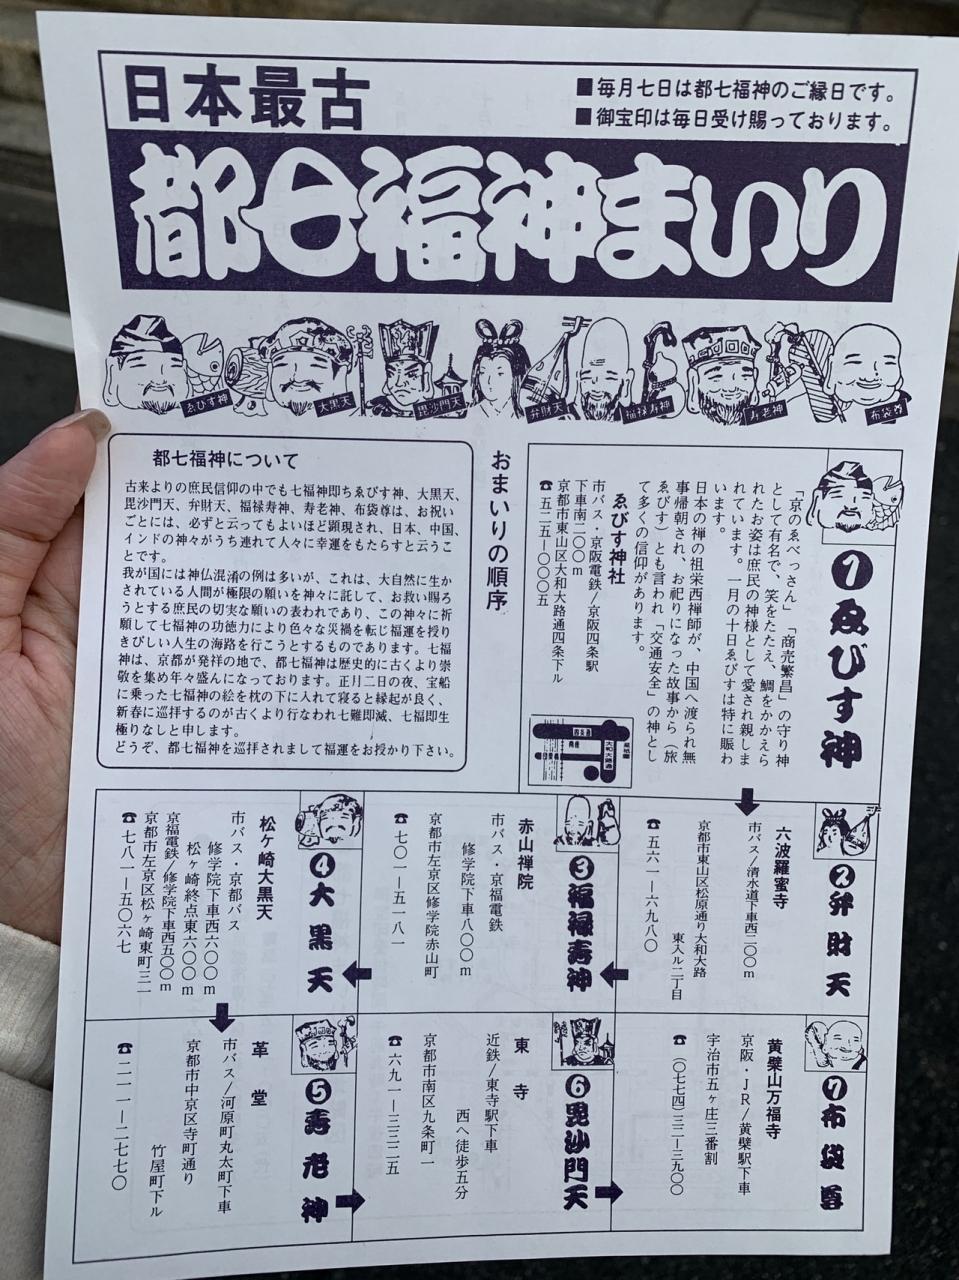 日本最古
■毎月七日は都七福神のご縁日です。
■御宝印は毎日受け賜っております。
都七福神まいり
ゑびす神
大黒天
毘沙門天
弁財天
福禄寿神
寿老神
布袋尊
都七福神について
古来よりの庶民信仰の中でも七福神即ちゑびす神、大黒天、
毘沙門天、弁財天、福禄寿神、寿老神、布袋尊は、お祝い
ごとには、必ずと云ってもよいほど顕現され、日本、中国、
インドの神々がうち連れて人々に幸運をもたらすと云うこ
とです。
我が国には神仏混淆の例は多いが、これは、大自然に生か
されている人間が極限の願いを神々に託して、お救い賜ろ
うとする庶民の切実な願いの表われであり、この神々に祈
願して七福神の功徳力により色々な災禍を転じ福運を授り
きびしい人生の海路を行こうとするものであります。七福
神は、京都が発祥の地で、都七福神は歴史的に古くより崇
敬を集め年々盛んになっております。正月二日の夜、宝船
に乗った七福神の絵を枕の下に入れて寝ると縁起が良く、
新春に巡拝するのが古くより行なわれ七難即滅、七福即生
極りなしと申します。
どうぞ、都七福神を巡拝されまして福運をお授かり下さい。
おまいりの順序
❶ゑびす神
「京のゑべっさん」「商売繁昌」の守り神
として有名で、笑をたたえ、鯛をかかえら
れたお姿は庶民の神様として愛され親しま
れています。一月の十日ゑびすは特に賑わ
います。
日本の禅の祖栄西禅師が、中国へ渡られ無
事帰朝され、お祀りになった故事から（旅
ゑびす）とも言われ「交通安全」の神とし
て多くの信仰があります。
ゑびす神社
市バス・京阪電鉄/京阪四条駅
下車南二〇〇m
京都市東山区大和大路通四条下ル
☎五二五―〇〇〇五
❷弁財天
六波羅蜜寺
市バス/清水道下車西二〇〇m
京都市東山区松原通り大和大路
東入ル二丁目
☎五六一―六九八〇
❸福禄寿神
赤山禅院
市バス・京福電鉄
修学院下車八〇〇m
京都市左京区修学院赤山町
☎七〇一―五一八一
❹大黒天
松ヶ崎大黒天
市バス・京都バス
修学院下車西六〇〇m
松ヶ崎終点東六〇〇m
京福電鉄/修学院下車西五〇〇m
京都市左京区松ヶ崎東町三一
☎七八一―五〇六七
❺寿老神
革堂
市バス/河原町丸太町下車
京都市中京区寺町通り
竹屋町下ル
☎二一一―二七七〇
❻毘沙門天
東寺
近鉄/東寺駅下車
西へ徒歩五分
京都市南区九条町一
☎六九一―三三二五
❼布袋尊
黄檗山万福寺
京阪・JR/黄檗駅下車
宇治市五ヶ庄三番割
☎（〇七七四）三二―三九〇〇